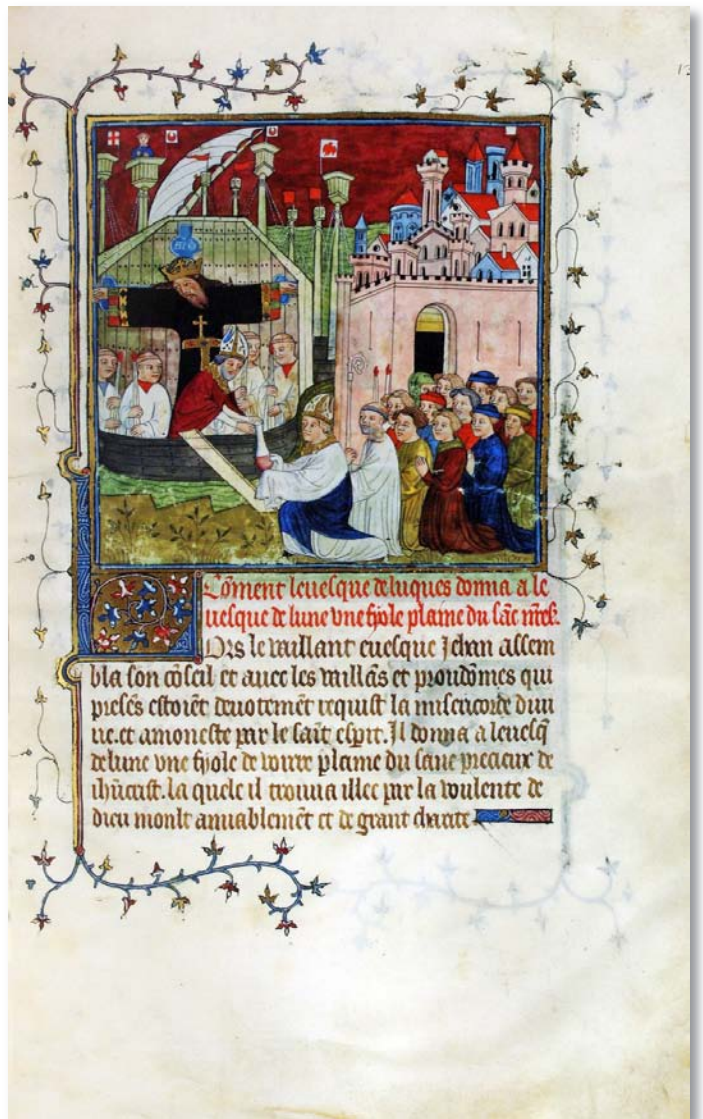 Cõment leuesque de luques donna a le
uesque de lune vne fyole plaine du sãc
Ors le vaillant euesque Jehan assem
bla son cõseil et auec les vaillãs et proudõmes qui
presẽs estoiẽt deuotemẽt requist la misericorde diui
ne. et amoneste par le saĩt esprit. Il donna a leuesq̃
de lune vne fyole de voirre plaine du sanc precieux de
ihũcrist. la quele il trouua illec par la voulente de
dieu moult amiablemẽt et de grant charite